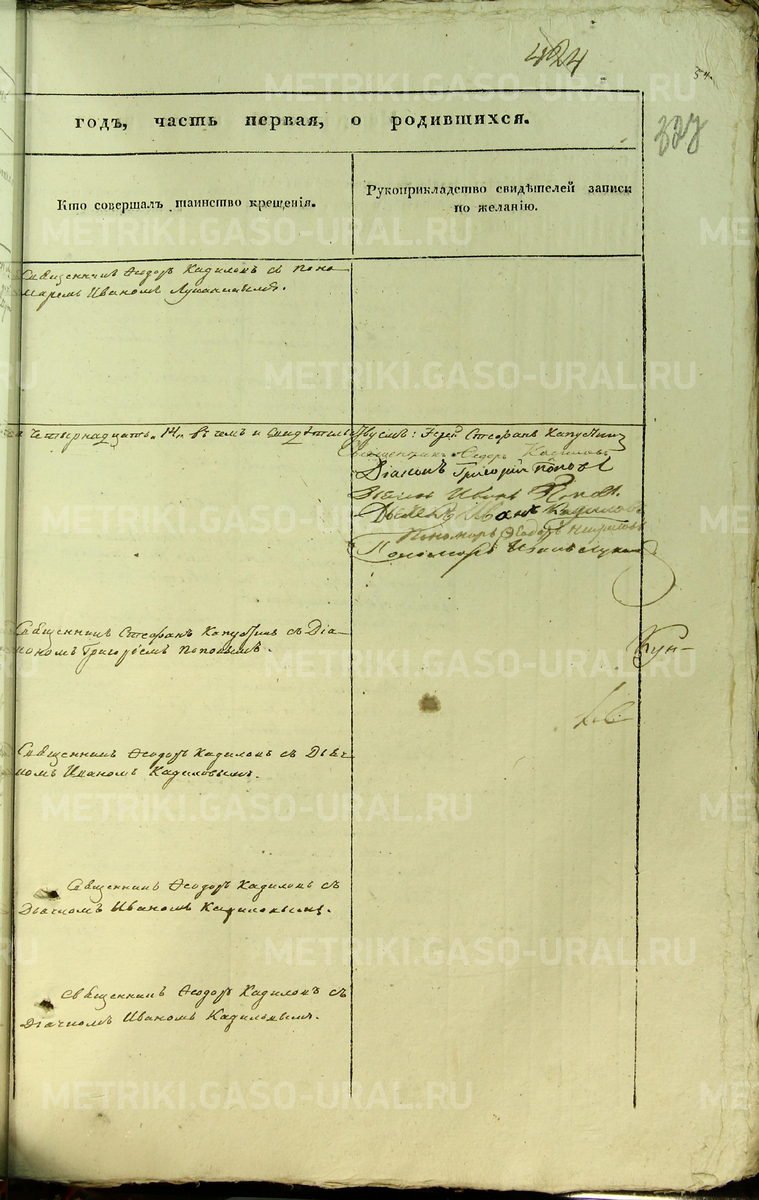 424
54.
327
годъ, часть первая, о родившихся.
Кто совершалъ таинство крещенія.
Рукоприкладство свидѣтелей записи
по желанію.
Священникъ Ѳеодоръ Кадиловъ съ Поно-
маремъ Иваномъ
четырнадцать. 14, въ чемъ и свидѣтельствуемъ: Іерей Стефанъ Капустинъ
Священникъ Федоръ Кадиловъ
Діаконъ Григорій Поповъ
Иванъ Поповъ
Дьячекъ Иванъ Кадиловъ
Пономарь Ѳеодоръ
Пономарь Иванъ
Священникъ Стефанъ Капустинъ съ Діа-
кономъ Григоріемъ Поповымъ.
Кун-
Священникъ Ѳеодоръ Кадиловъ съ Дьяч-
комъ Иваномъ Кадиловымъ.
Священникъ Ѳеодоръ Кадиловъ съ
Дьячкомъ Иваномъ Кадиловымъ.
Священникъ Ѳеодоръ Кадиловъ съ
Діачкомъ Иваномъ Кадиловымъ.
METRIKI.GASO-URAL.RU